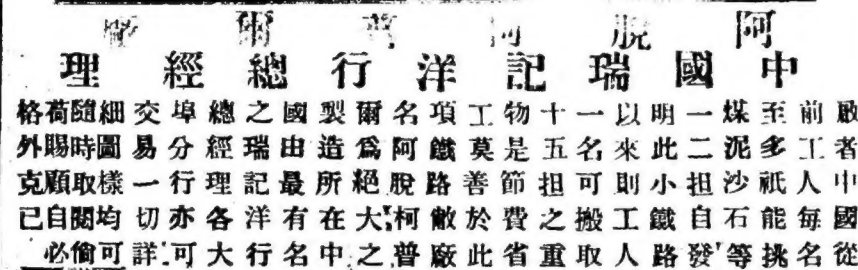 阿脫柯普爾廠
中國瑞記洋行總經理
啟者中國從
前工人每名
至多祇能挑
煤泥沙石等
一二担自發
明此小鐵路
以來則工人
一名可搬取
十五担之重
物是節費省
工莫善於此
項鐵路敝廠
名阿脫柯普
爾爲絕大之
製造所在中
國由最有名
之瑞記洋行
總經理各大
埠分行亦可
交易一切詳
細圖樣均可
隨時取閱倘
荷賜顧自必
格外克已